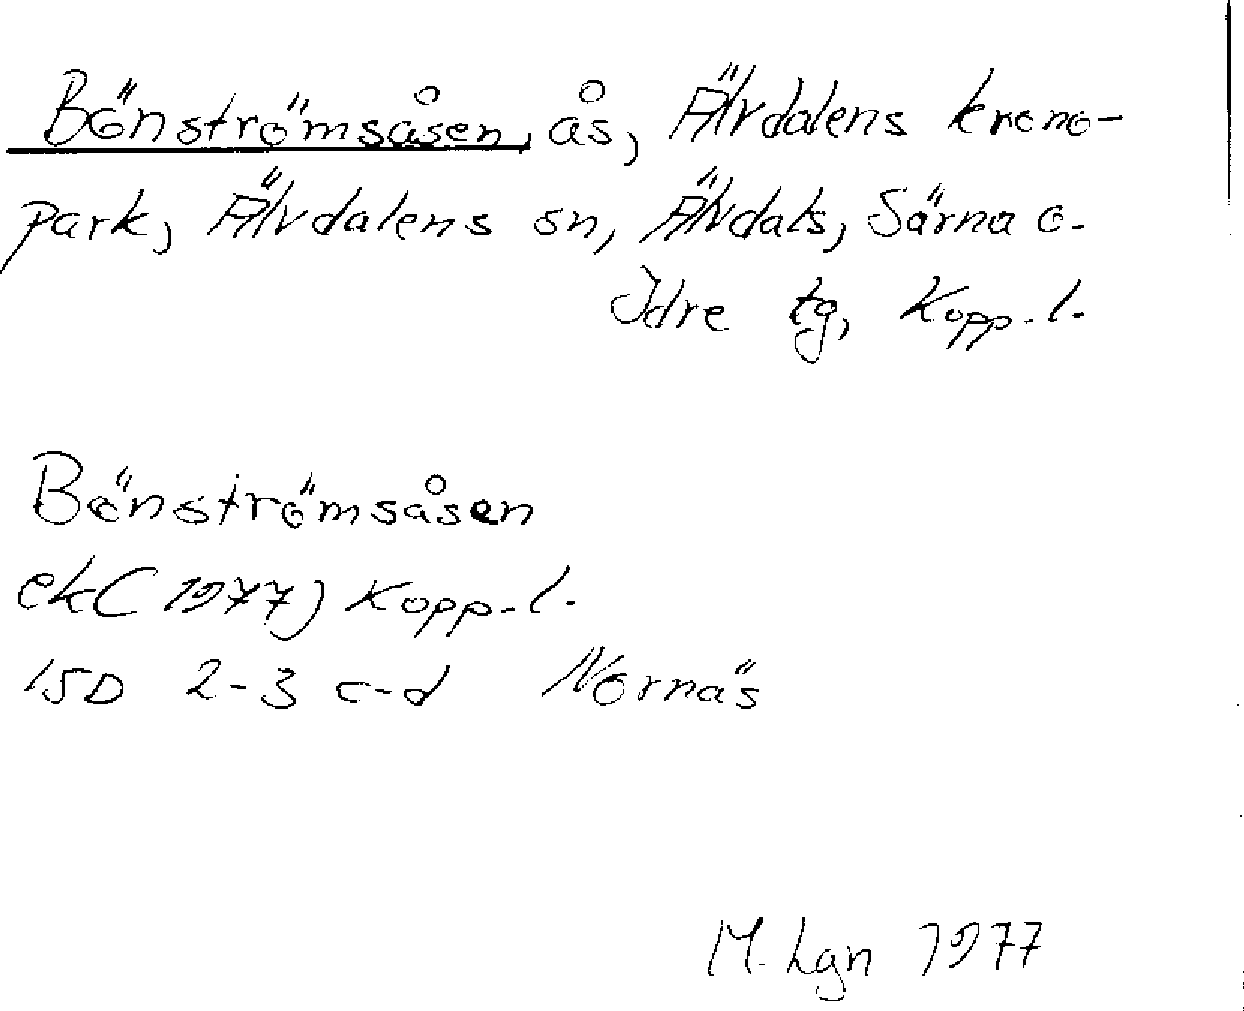 Bönströmsåsen, ås, Älvdalens krono-
park, Älvdalens sn, Älvdals, Särna o.
Idre tg, Kopp. l.
Bönströmsåsen
ek (1977) Kopp. l.
15D 2-3 c-d Nornäs
M. Lgn 1977